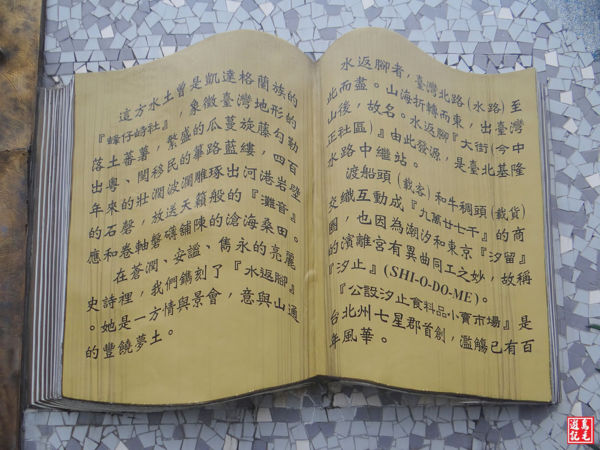 這方水土曾是凱達格蘭族的
『蜂仔峙社』，象徵臺灣地形的
落土蕃薯，繁盛的瓜蔓旋藤勾勒
出粵、閩移民的篳路藍縷，四百
年來的壯濶波瀾雕琢出河港岩壁
的石磬，放送天籟般的『灘音』
應和卷軸磐礡鋪陳的滄海桑田。
在蒼潤、安謐、雋永的亮麗
史詩裡，我們鐫刻了『水返腳』
。她是一方情與景會，意與山通
的豐饒夢土。
水返腳者，臺灣北路（水路）至
北而盡。山海折轉而東，出臺灣
山後，故名。水返腳『大街（今中
正社區）』由此發源，是臺北基隆
水路中繼站。
渡船頭（載客）和牛稠頭（載貨）
交織互動成『九萬廿七千』的商
圈，也因為潮汐和東京『汐留』
的濱離宮有異曲同工之妙，故稱
『汐止』(SHI-O-DO-ME)。
『公設汐止食料品小賣市場』是
台北州七星郡首創，濫觴已有百
年風華。